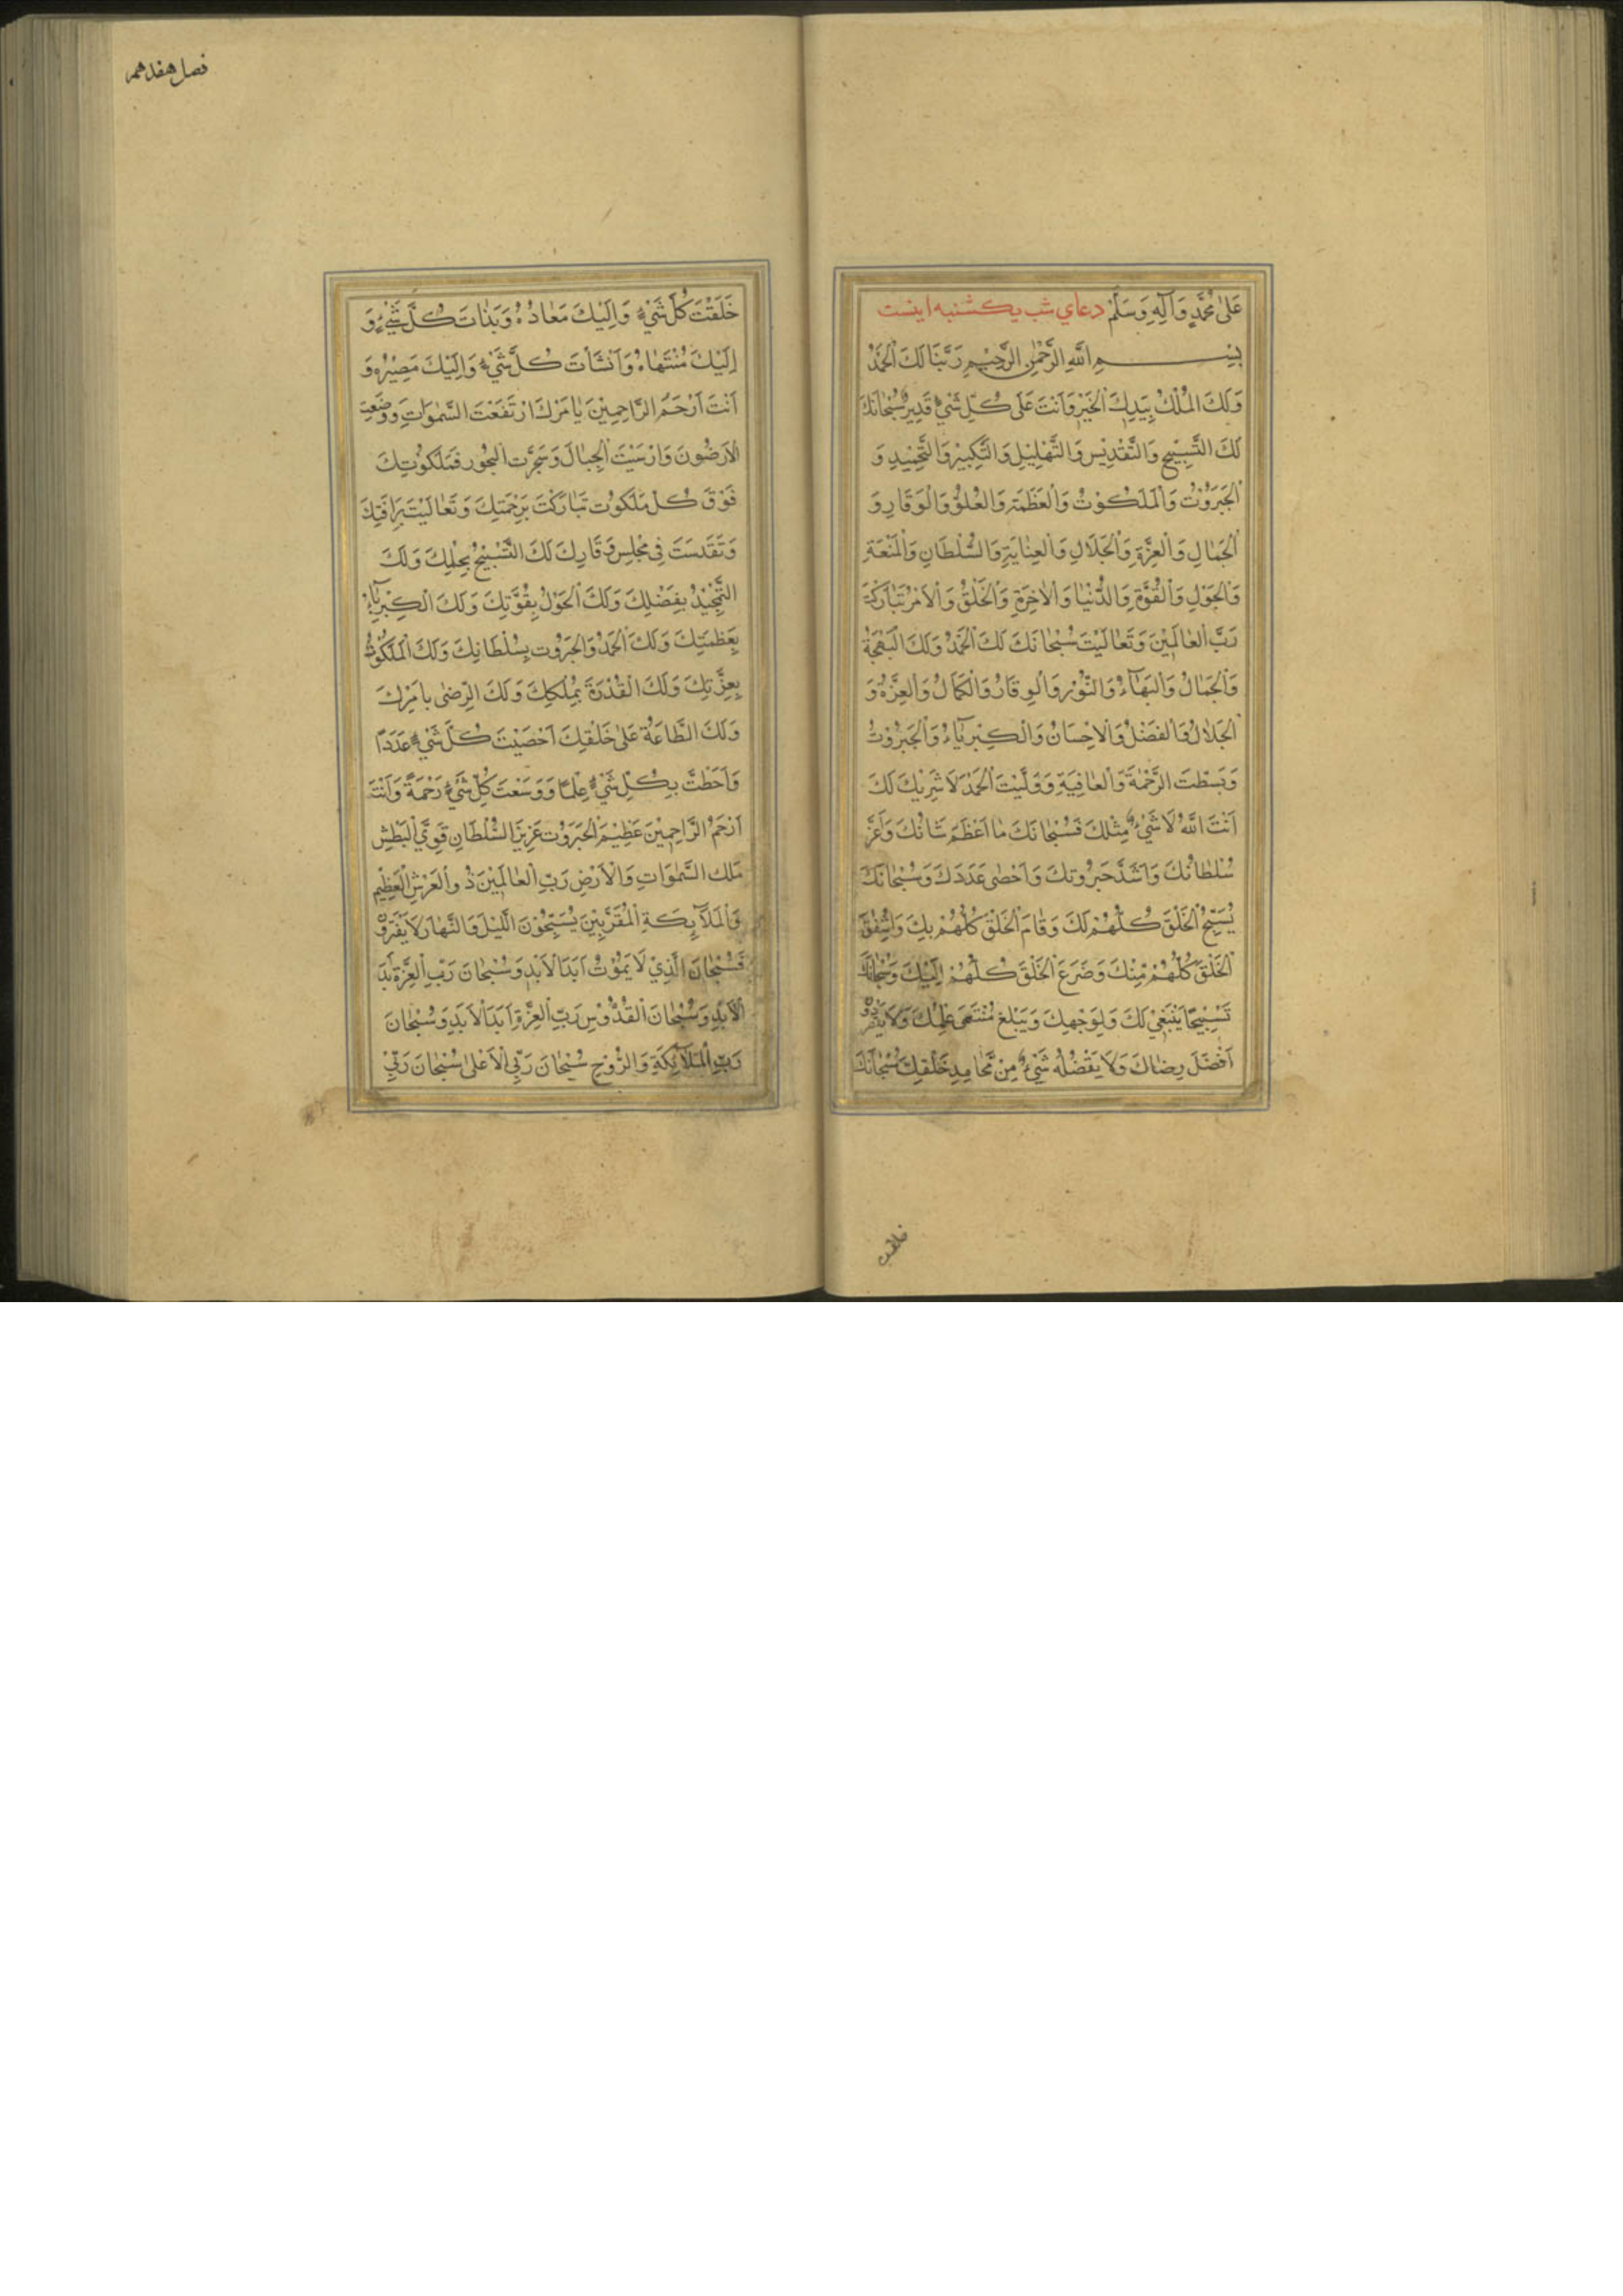 عَلىٰ مُحَمَّدٍ وَآلِهِ وَسَلَّم دعاي شب يكشنبه اينست
بِسْمِ اللهِ الرَّحْمٰنِ الرَّحِيْمِ رَبَّنَا لَكَ الْحَمْدُ
وَلَكَ الْمُلْكُ بِيَدِكَ الْخَيْرُ وَاَنْتَ عَلَى كُلِّ شَيْءٍ قَدِيْرٌ سُبْحَانَكَ
لَكَ التَّسْبِيْحُ وَالتَّقْدِيْسُ وَالتَّهْلِيْلِ وَالتَّكْبِيْرُ وَالتَّحْمِيْدِ وَ
الْجَبَرُوْتُ وَالْمَلَكُوْتُ وَالْعَظَمَةِ وَالْعُلُوُّ وَالْوَقَارِ وَ
الْجَمَالِ وَالْعِزَّةِ وَالْجَلَالِ وَالْعِنَايَةِ وَالسُّلْطَانِ وَالْمَنَعَةِ
وَالْحَوْلِ وَالْقُوَّةِ وَالدُّنْيَا وَالْاٰخِرَةِ وَالْخَلْقُ وَالْاَمْرُ تَبَارَكْتَ
رَبَّ الْعَالَمِيْنَ وَتَعَالَيْتَ سُبْحَانَكَ لَكَ الْحَمْدُ وَلَكَ الْبَهْجَةُ
وَالْجَمَالُ وَالْبَهَآءُ وَالنُّوْرُ وَالْوِقَارُ وَالْكَمَالُ وَالْعِزَّةُ وَ
الْجَلَالُ وَالْفَضْلُ وَالْاِحْسَانُ وَالْكِبْرِيَآءُ وَالْجَبَرُوْتُ
وَبَسَطْتَ الرَّحْمَةَ وَالْعَافِيَةِ وَوَلَّيْتَ الْحَمْدَ لَا شَرِيْكَ لَكَ
اَنْتَ اللهُ لَا شَيْءَ مِثْلُكَ فَسُبْحَانَكَ مَا اَعْظَمَ شَانُكَ وَاَعَزَّ
سُلْطَانُكَ وَاَشَدَّ جَبَرُوتكَ وَاَحْصٰى عَدَدَكَ وَسُبْحَانَكَ
يُسَبِّحُ الْخَلْقَ كُلُّهُمْ لَكَ وَقَامَ الْخَلْقَ كُلُّهُمْ بِكَ وَاَشْفَقَ
الْخَلْقَ كُلُّهُمْ مِنْكَ وَضَرَعَ الْخَلْقَ كُلُّهُمْ اِلَيْكَ وَسُبْحَانَكَ
تَسْبِيْحًا يَنْبَغِيْ لَكَ وَلِوَجْهِكَ وَيَبْلغ مُنْتَهَى عِلْمِكَ وَلَا
اَفْضَلَ رِضَاكَ وَلَا يَفْضُلُهُ شَيْءٌ مِنْ مَحَامِدِ خَلْقِكَ سُبْحَانَكَ
خلقت
فصل هفدهم
خَلَقْتَ كُلَّ شَيْءٍ وَاِلَيْكَ مَعَادُهُ وَبَدَاتَ كُلَّ شَيْءٍ وَ
اِلَيْكَ مُنْتَهَاهُ وَاَنْشَأتَ كُلَّ شَيْءٍ وَاِلَيْكَ مَصِيْرُهُ وَ
اَنْتَ اَرْحَمُ الرَّاحِمِيْنَ بِاَمْرِكَ ارْتَفَعَتَ السَّمٰوَاتِ وَوُضِعَتِ
الْاَرَضُونَ وَاَرْسَيْتَ الْجِبَالَ وَسَجَّرَت الْبُحُور فَمَلَكُوتِكَ
فَوْقَ كُلِّ مَلَكوُت تَبَارَكْتَ بِرَحْمَتِكَ وَتَعَالَيْتَ بِرَافَتِكَ
وَتَقَدَّسَتَ فِي مَجْلِسِ وَقَارِكَ لَكَ التَّسْبِيْحُ بِحِلْمِكَ وَلَكَ
التَّمْجِيْدُ بِفَضْلِكَ وَلَكَ الْحَوْلُ بِقُوَّتِكَ وَلَكَ الْكِبْرِيَآءُ
بِعَظَمَتِكَ وَلَكَ الْحَمْدُ وَالْجَبَرُوت بِسُلْطَانِكَ وَلَكَ الْمَلَكُوْتُ
بِعِزَّتِكَ وَلَكَ الْقُدْرَةَ بِمُلْكِكَ وَلَكَ الرِّضٰى بِاَمْرِكَ
وَلَكَ الطَّاعَةُ عَلىٰ خَلْقِكَ اَحْصَيْتَ كُلَّ شَيْءٍ عَدَدًا
وَاَحَطْتَ بِكُلِّ شَيْءٍ عِلْمًا وَوَسَعْتَ كُلَّ شَيْءٍ رَحْمَةً وَاَنْتَ
اَرْحَمُ الرَّاحِمِيْنَ عَظِيْمُ الْجَبَرَوُت عَزِيْزَ السُّلْطَانِ قَوِيَّ الْبَطْشِ
مَلِكَ السَّمٰوَاتِ وَالْاَرْضِ رَبِّ الْعَالَمِيْنَ ذُو الْعَرْشِ الْعَظِيْمِ
وَالْمَلَآئِكَةِ الْمُقَرَّبِيْنَ يُسَبِّحُوْنَ اللَّيْلَ وَالنَّهَارَ لَا يَفْتَرُوْنَ
فَسُبْحَانَ الَّذِيْ لَا يَمُوْتُ اَبَدَ الْاَبَدِ وَسُبْحَانَ رَبِّ الْعِزَّةِ اَبَدَ
الْاَبَدِ وَسُبْحَانَ الْقُدُّوْسِ رَبِّ الْعِزَّةِ اَبَدَ الْاَبَدِ وَسُبْحَانَ
رَبِّ الْمَلَآئِكَةِ وَالرُّوْحِ سُبْحَانَ رَبِّي الْاَعْلىٰ سُبْحَانَ رَبِّيْ